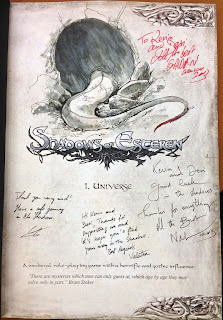 To Kevin
and
SHADOWS OF ESTEREN
1. UNIVERSE
Thank you very much!
Have a safe journey
in the Shadows
Hi Kevin and
Thanks for
supporting us and
let's hope you'll find
your way in the Shadows.
Best Regards
Kevin and
Good luck
in the shadows
Thanks for everything
All the Best
A medieval role-playing game with a horrific and gothic influence
"There are mysteries which men can only guess at, which age by age they may
solve only in part." Bram Stoker